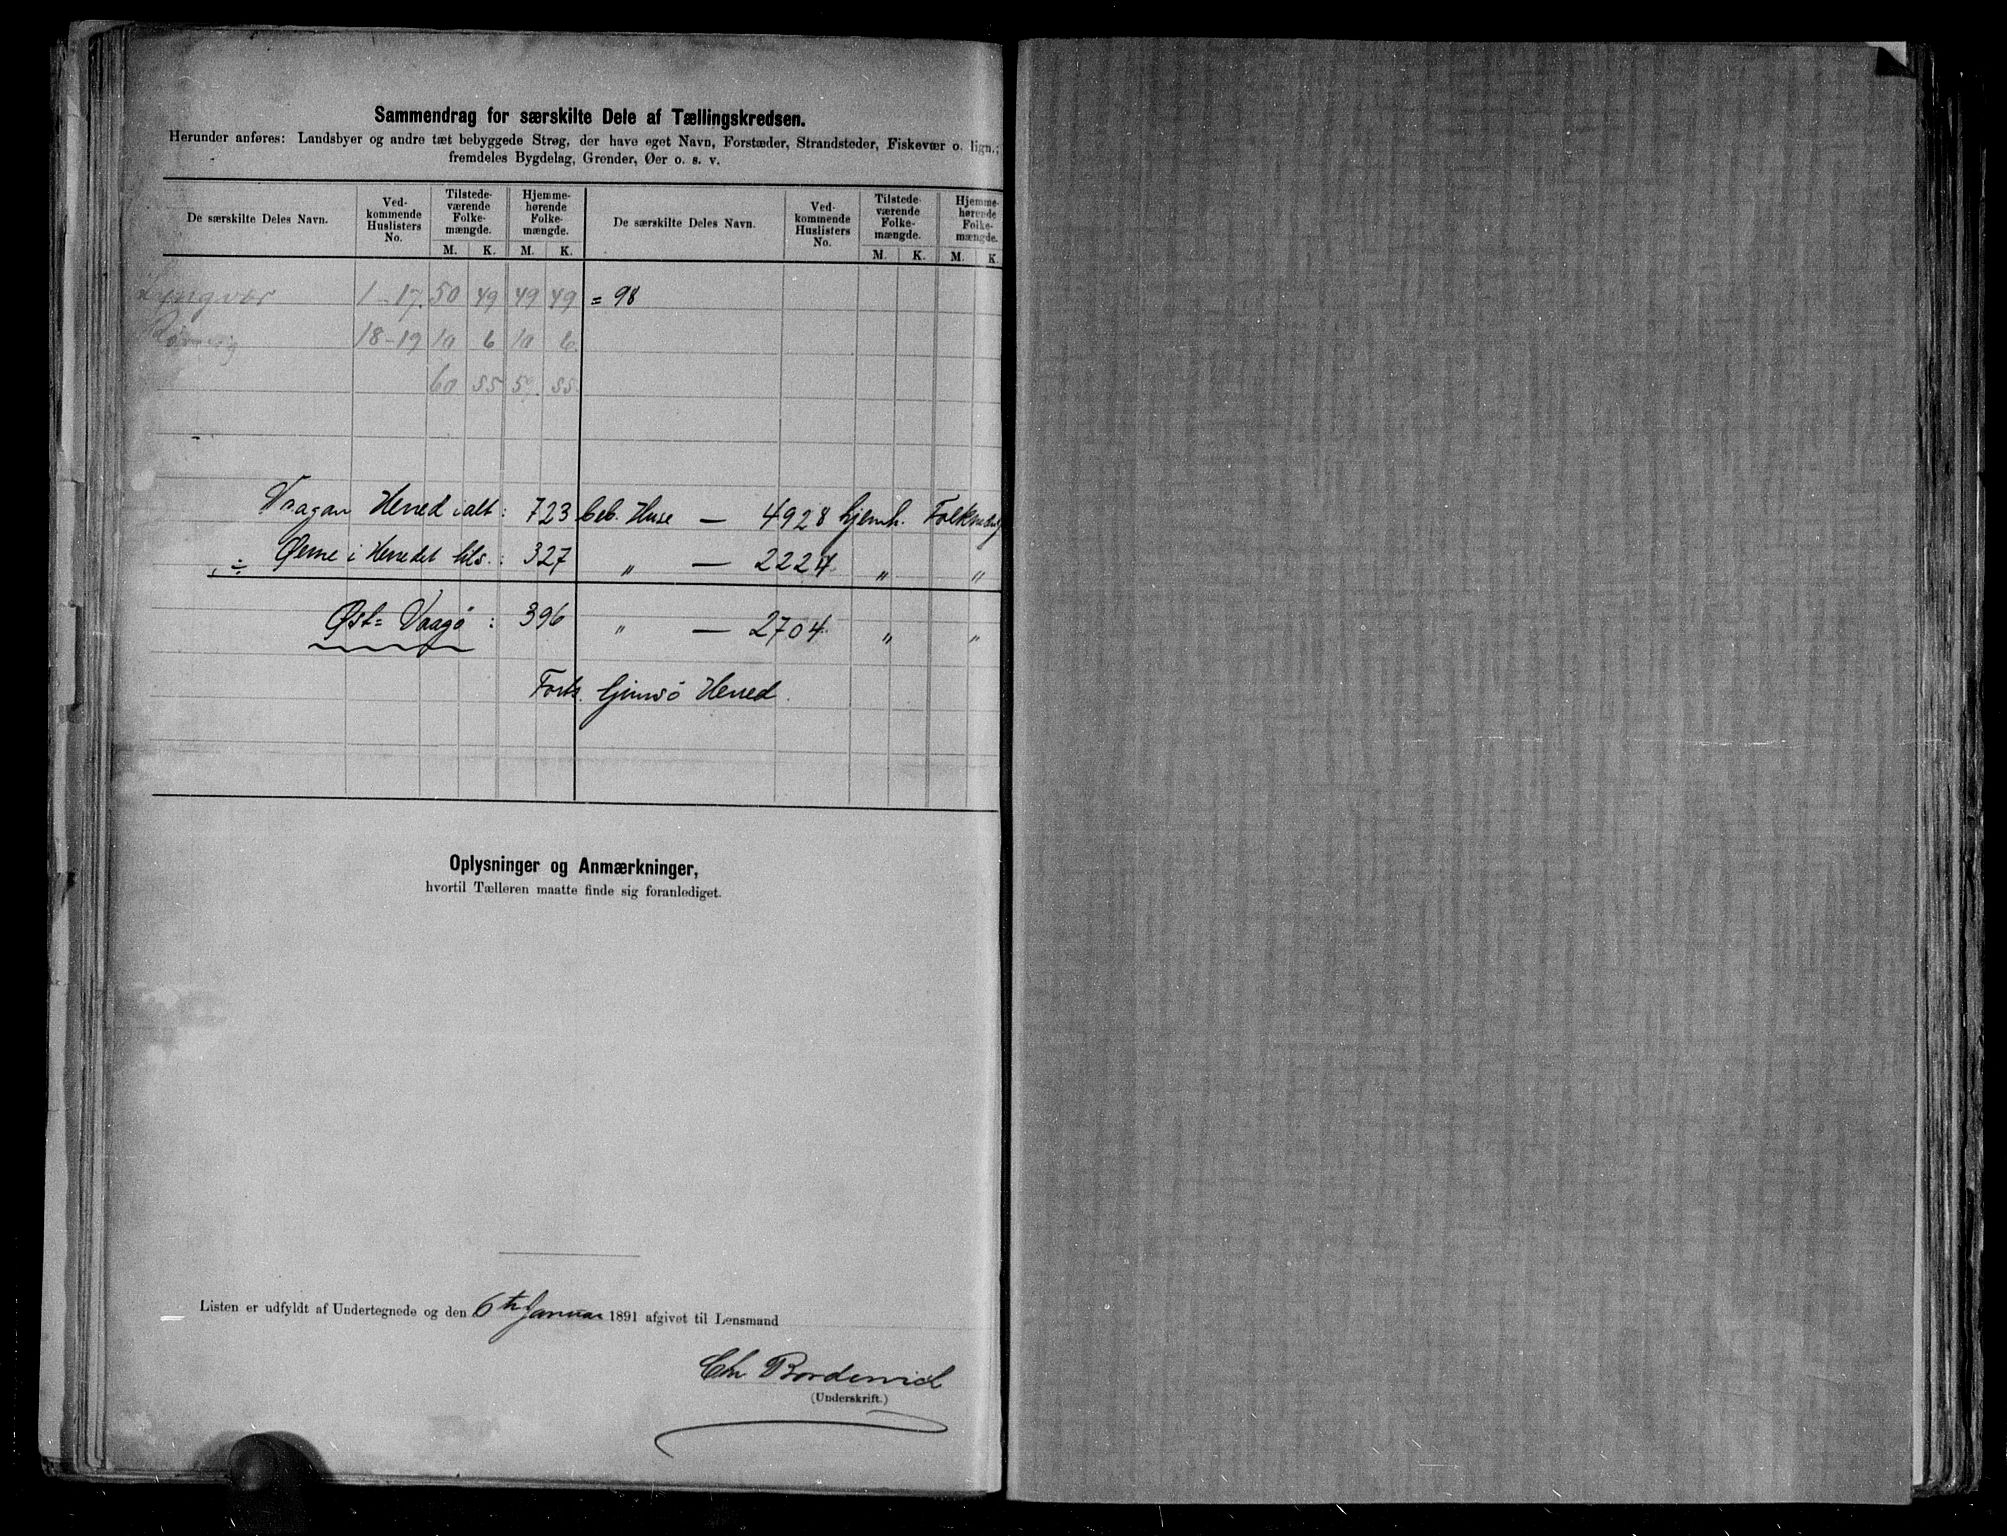 Sammendrag for særskilte Dele af Tællingskredsen.
Herunder anføres: Landsbyer og andre tæt bebyggede Strøg, der have eget Navn, Forstæder, Strandsteder, Fiskevær o. lign.;
fremdeles Bygdelag, Grender, Øer o. s. v.
De særskilte Deles Navn. Vedkommende Huslisters No. Tilstedeværende Folkemængde. M. K. Hjemmehørende Folkemængde. M. K. De særskilte Deles Navn. Vedkommende Huslisters No. Tilstedeværende Folkemængde. M. K. Hjemmehørende Folkemængde. M. K.
Lyngvær 1-17. 50 49 49 49 = 98
18-19 10 6 10 6
60 55 59 55
Vaagan Herred ialt: 723 beb. Huse — 4928 hjemh.
÷ Øerne i Herredet tils.: 327 „ — 2224 „ „
Øst-Vaagø: 396 „ — 2704 „ „
Forts. Gimsø Herred.
Oplysninger og Anmærkninger,
hvortil Tælleren maatte finde sig foranlediget.
Listen er udfyldt af Undertegnede og den 6te Januar 1891 afgivet til Lensmand
Chr Bordevick
(Underskrift.)